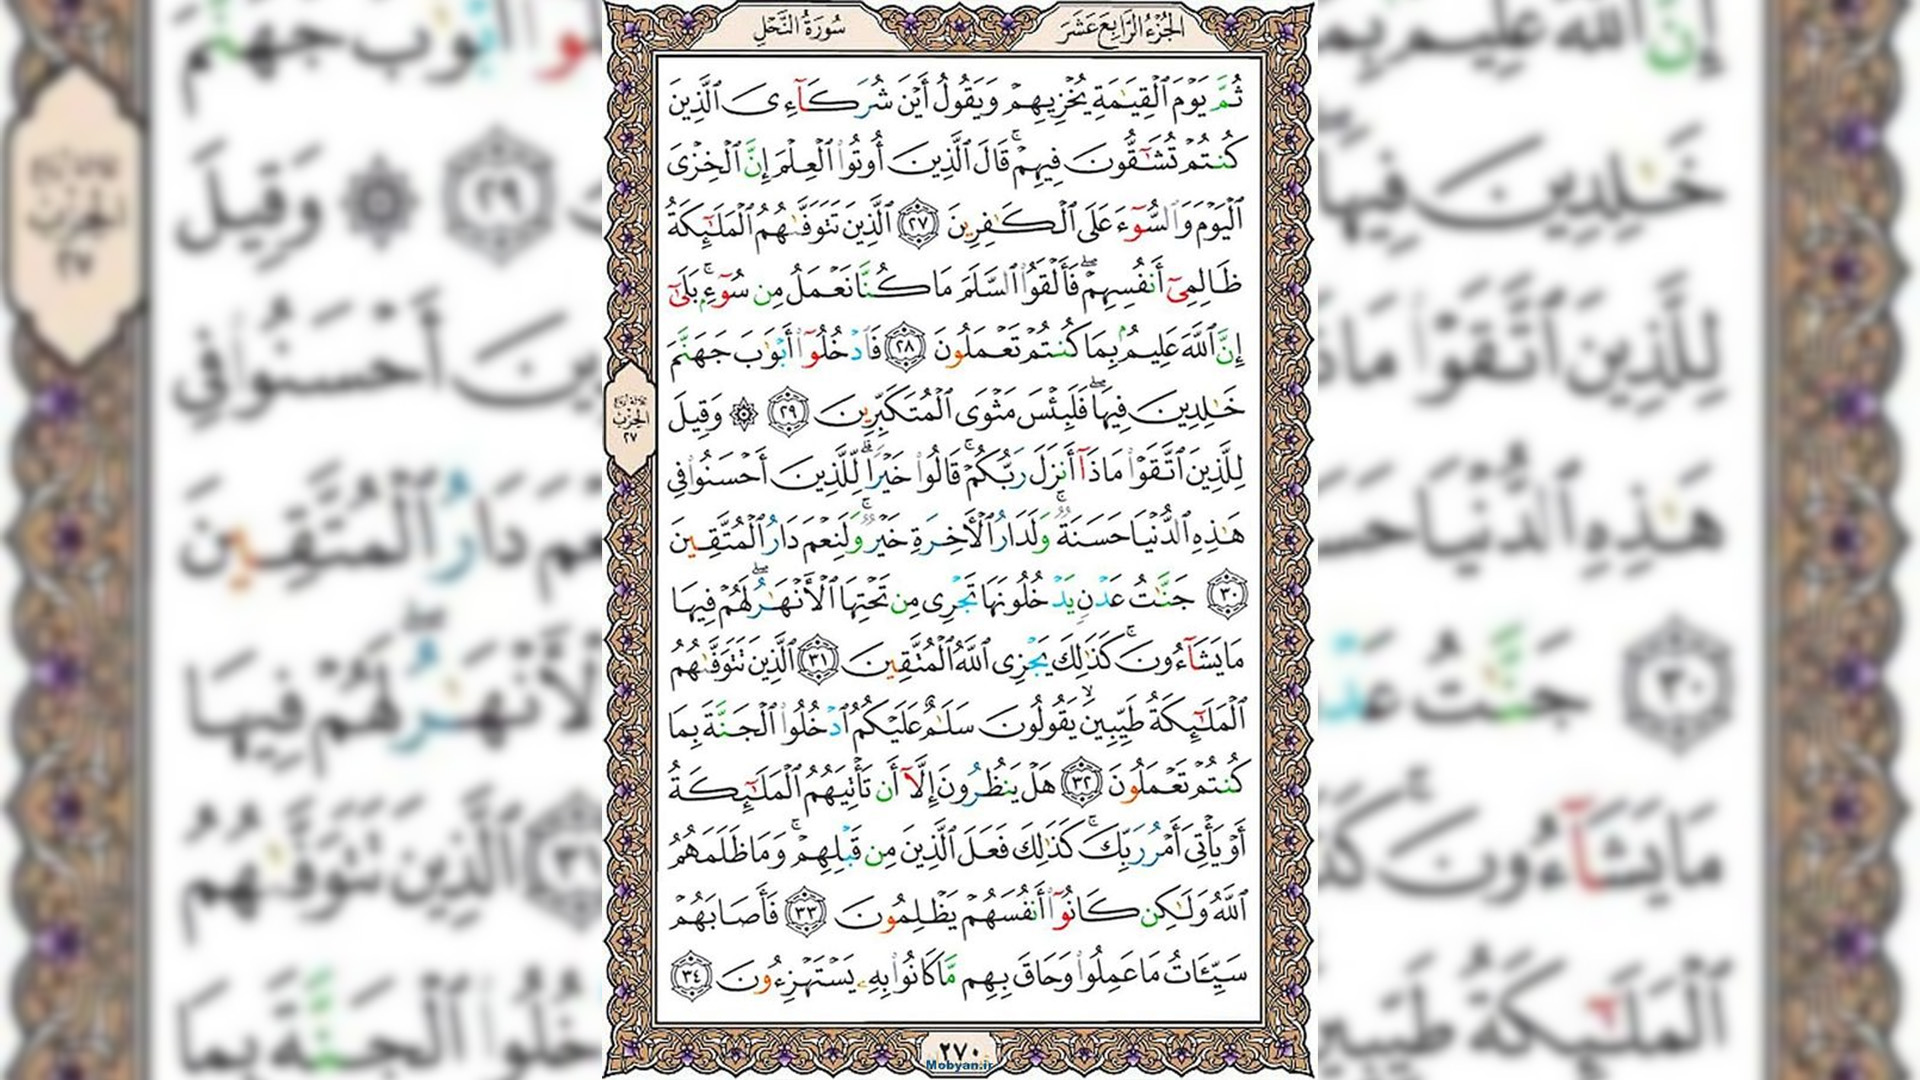 الجزء الرابع عشر
سورة النحل
ثُمَّ يَوْمَ ٱلْقِيَـٰمَةِ يُخْزِيهِمْ وَيَقُولُ أَيْنَ شُرَكَآءِىَ ٱلَّذِينَ
كُنتُمْ تُشَـٰٓقُّونَ فِيهِمْ ۚ قَالَ ٱلَّذِينَ أُوتُوا۟ ٱلْعِلْمَ إِنَّ ٱلْخِزْىَ
ٱلْيَوْمَ وَٱلسُّوٓءَ عَلَى ٱلْكَـٰفِرِينَ ٢٧ ٱلَّذِينَ تَتَوَفَّىٰهُمُ ٱلْمَلَـٰٓئِكَةُ
ظَالِمِىٓ أَنفُسِهِمْ ۖ فَأَلْقَوُا۟ ٱلسَّلَمَ مَا كُنَّا نَعْمَلُ مِن سُوٓءٍۭ ۚ بَلَىٰٓ
إِنَّ ٱللَّهَ عَلِيمٌۢ بِمَا كُنتُمْ تَعْمَلُونَ ٢٨ فَٱدْخُلُوٓا۟ أَبْوَٰبَ جَهَنَّمَ
خَـٰلِدِينَ فِيهَا ۖ فَلَبِئْسَ مَثْوَى ٱلْمُتَكَبِّرِينَ ٢٩ ۞ وَقِيلَ
لِلَّذِينَ ٱتَّقَوْا۟ مَاذَآ أَنزَلَ رَبُّكُمْ ۚ قَالُوا۟ خَيْرًا ۗ لِّلَّذِينَ أَحْسَنُوا۟ فِى
هَـٰذِهِ ٱلدُّنْيَا حَسَنَةٌ ۚ وَلَدَارُ ٱلْـَٔاخِرَةِ خَيْرٌ ۚ وَلَنِعْمَ دَارُ ٱلْمُتَّقِينَ
٣٠ جَنَّـٰتُ عَدْنٍ يَدْخُلُونَهَا تَجْرِى مِن تَحْتِهَا ٱلْأَنْهَـٰرُ ۖ لَهُمْ فِيهَا
مَا يَشَآءُونَ ۚ كَذَٰلِكَ يَجْزِى ٱللَّهُ ٱلْمُتَّقِينَ ٣١ ٱلَّذِينَ تَتَوَفَّىٰهُمُ
ٱلْمَلَـٰٓئِكَةُ طَيِّبِينَ ۙ يَقُولُونَ سَلَـٰمٌ عَلَيْكُمُ ٱدْخُلُوا۟ ٱلْجَنَّةَ بِمَا
كُنتُمْ تَعْمَلُونَ ٣٢ هَلْ يَنظُرُونَ إِلَّآ أَن تَأْتِيَهُمُ ٱلْمَلَـٰٓئِكَةُ
أَوْ يَأْتِىَ أَمْرُ رَبِّكَ ۚ كَذَٰلِكَ فَعَلَ ٱلَّذِينَ مِن قَبْلِهِمْ ۚ وَمَا ظَلَمَهُمُ
ٱللَّهُ وَلَـٰكِن كَانُوٓا۟ أَنفُسَهُمْ يَظْلِمُونَ ٣٣ فَأَصَابَهُمْ
سَيِّـَٔاتُ مَا عَمِلُوا۟ وَحَاقَ بِهِم مَّا كَانُوا۟ بِهِۦ يَسْتَهْزِءُونَ ٣٤
ثلاثة أرباع
الحزب
٢٧
٢٧٠
Mobyan.ir